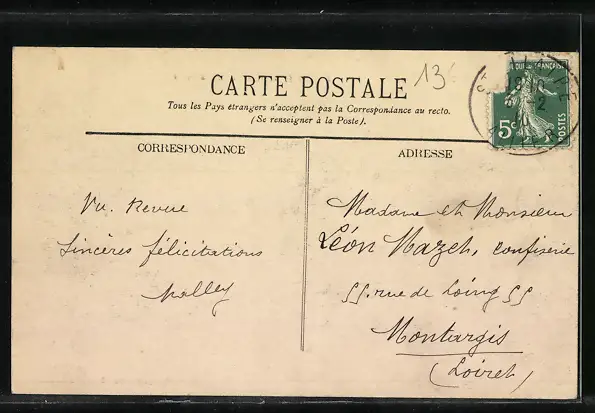 CARTE POSTALE
Tous les Pays étrangers n'acceptent pas la Correspondance au recto.
(Se renseigner à la Poste).
CORRESPONDANCE
ADRESSE
13
5c
POSTES
Vu. Revue
Sincères félicitations
Malley
Madame et Monsieur
Léon Mazet, confiserie
55. rue de Loing 55
Montargis
(Loiret)